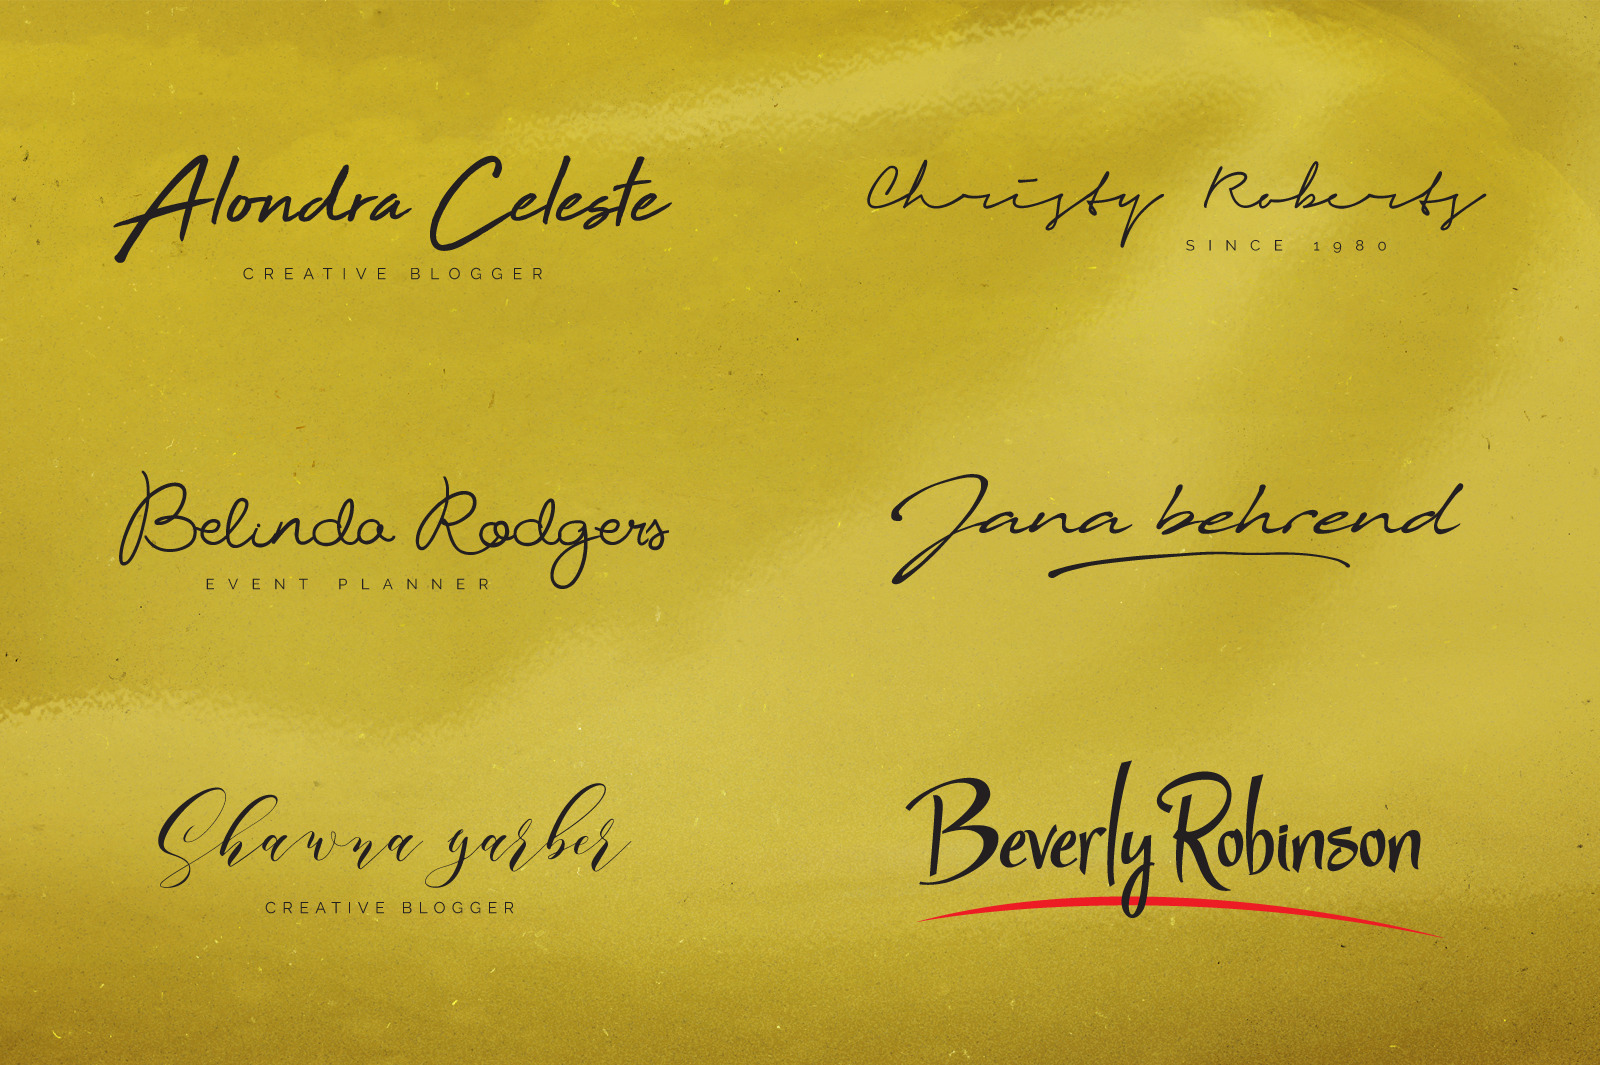 Alondra Celeste
CREATIVE BLOGGER
Christy Roberts
SINCE 1980
Belinda Rodgers
EVENT PLANNER
Jana behrend
Shawna garber
CREATIVE BLOGGER
Beverly Robinson